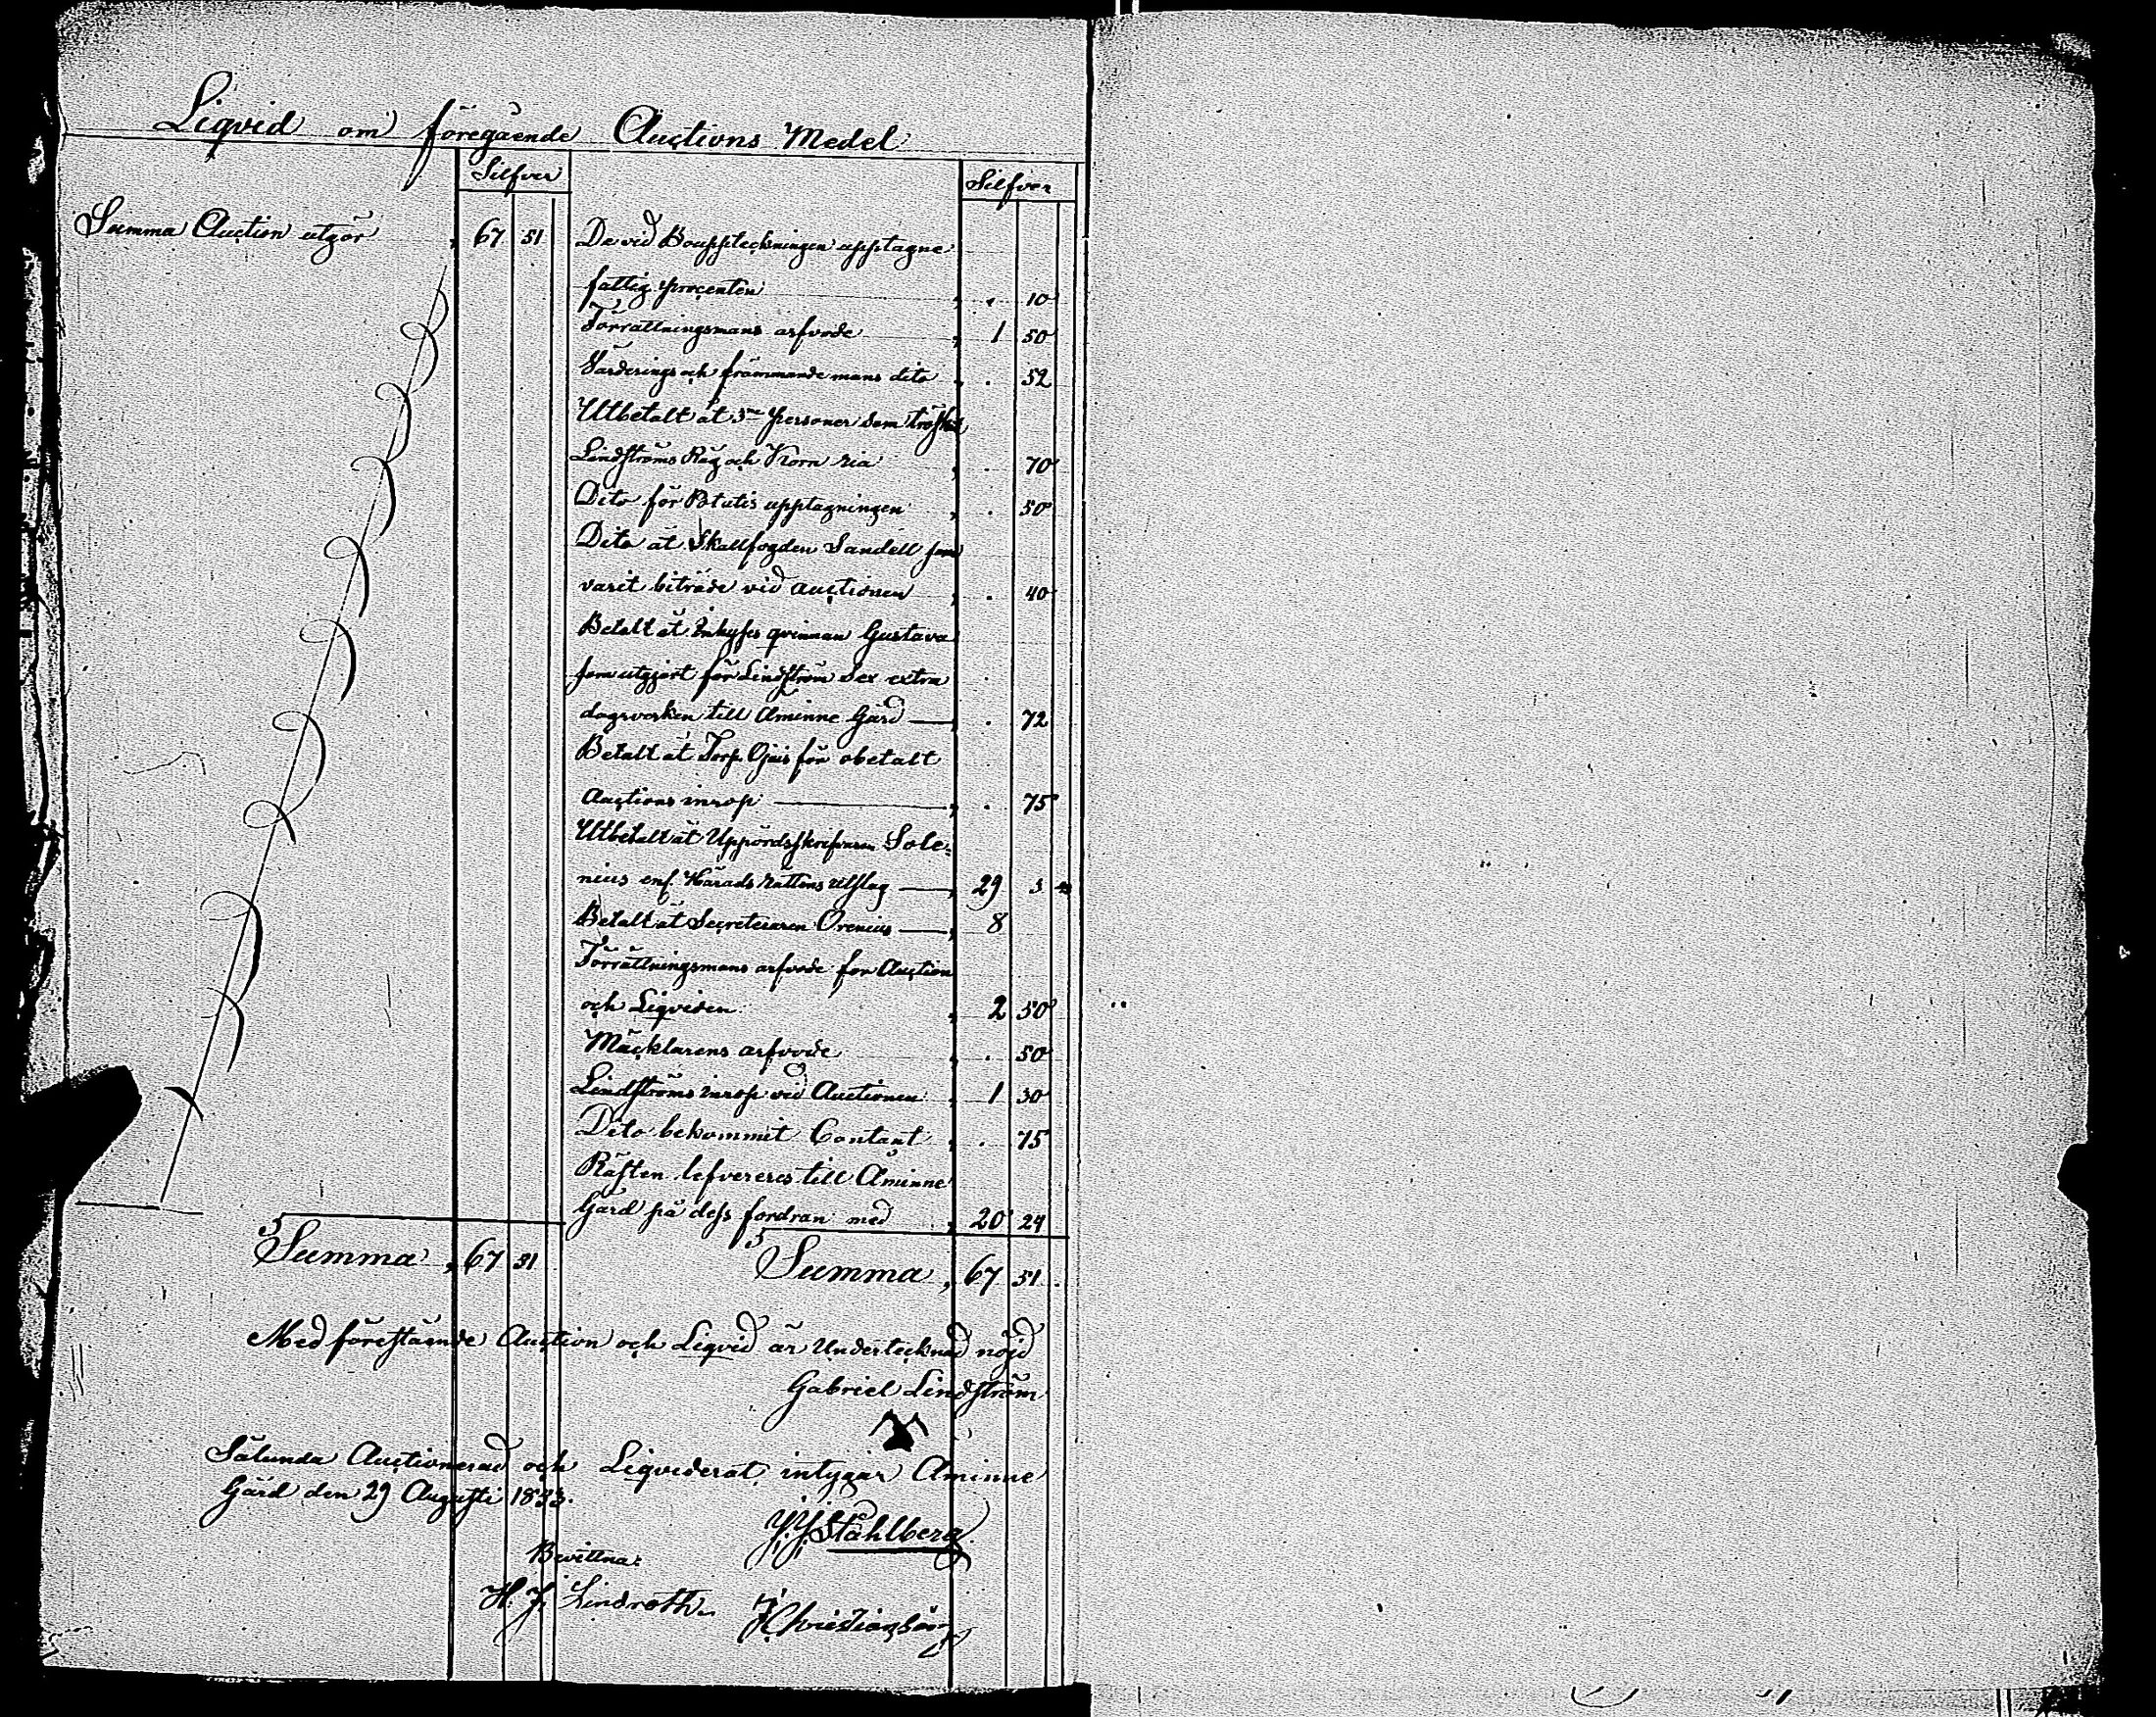 Liqvid om föregående Auctions Medel
Silfver
Silfver
Summa Auction utgör 67 51
De vid Bouppteckningen upptagne
fattig procenten " . 10
Förrättningsmans arfvode " 1 50
Värderings och främmande mans dito " . 52
Utbetalt åt 3ne personer som tröskat
Lindströms Råg och Korn ria " . 70
Dito för Potatis upptagningen " . 50
Dito åt Skallfogden Sandell som
varit biträde vid auctionen " . 40
Betalt åt Inhyses qvinnan Gustava
som utgjort för Lindström Sex extra
dagsverken till Åminne Gård " . 72
Betalt åt Torp. Ojais för obetalt
Auctions inrop " . 75
Utbetalt åt Uppördsskrifvaren Sole-
nius enl. Härads Rättens utslag " 29 3
Betalt åt Secreteraren Orenius " 8
Förrättningsmans arfvode för Auction
och Liqviden " 2 50
Mäcklarens arfvode " . 50
Lindströms inrop vid Auctionen " 1 30
Dito bekommit Contant " . 75
Råsten lefvereres till Åminne
Gård på dess fordran med " 20 24
Summa, 67 51
Summa, 67 51
Med förestående Auction och Liqvid är Undertecknad nöjd
Gabriel Lindström
Sålunda Auctionerad och Liqviderat intygar Åminne
Gård den 29 Augusti 1833.
J. J. Ståhlberg
Bevittna:
H. J. Lindroth. J Christianson